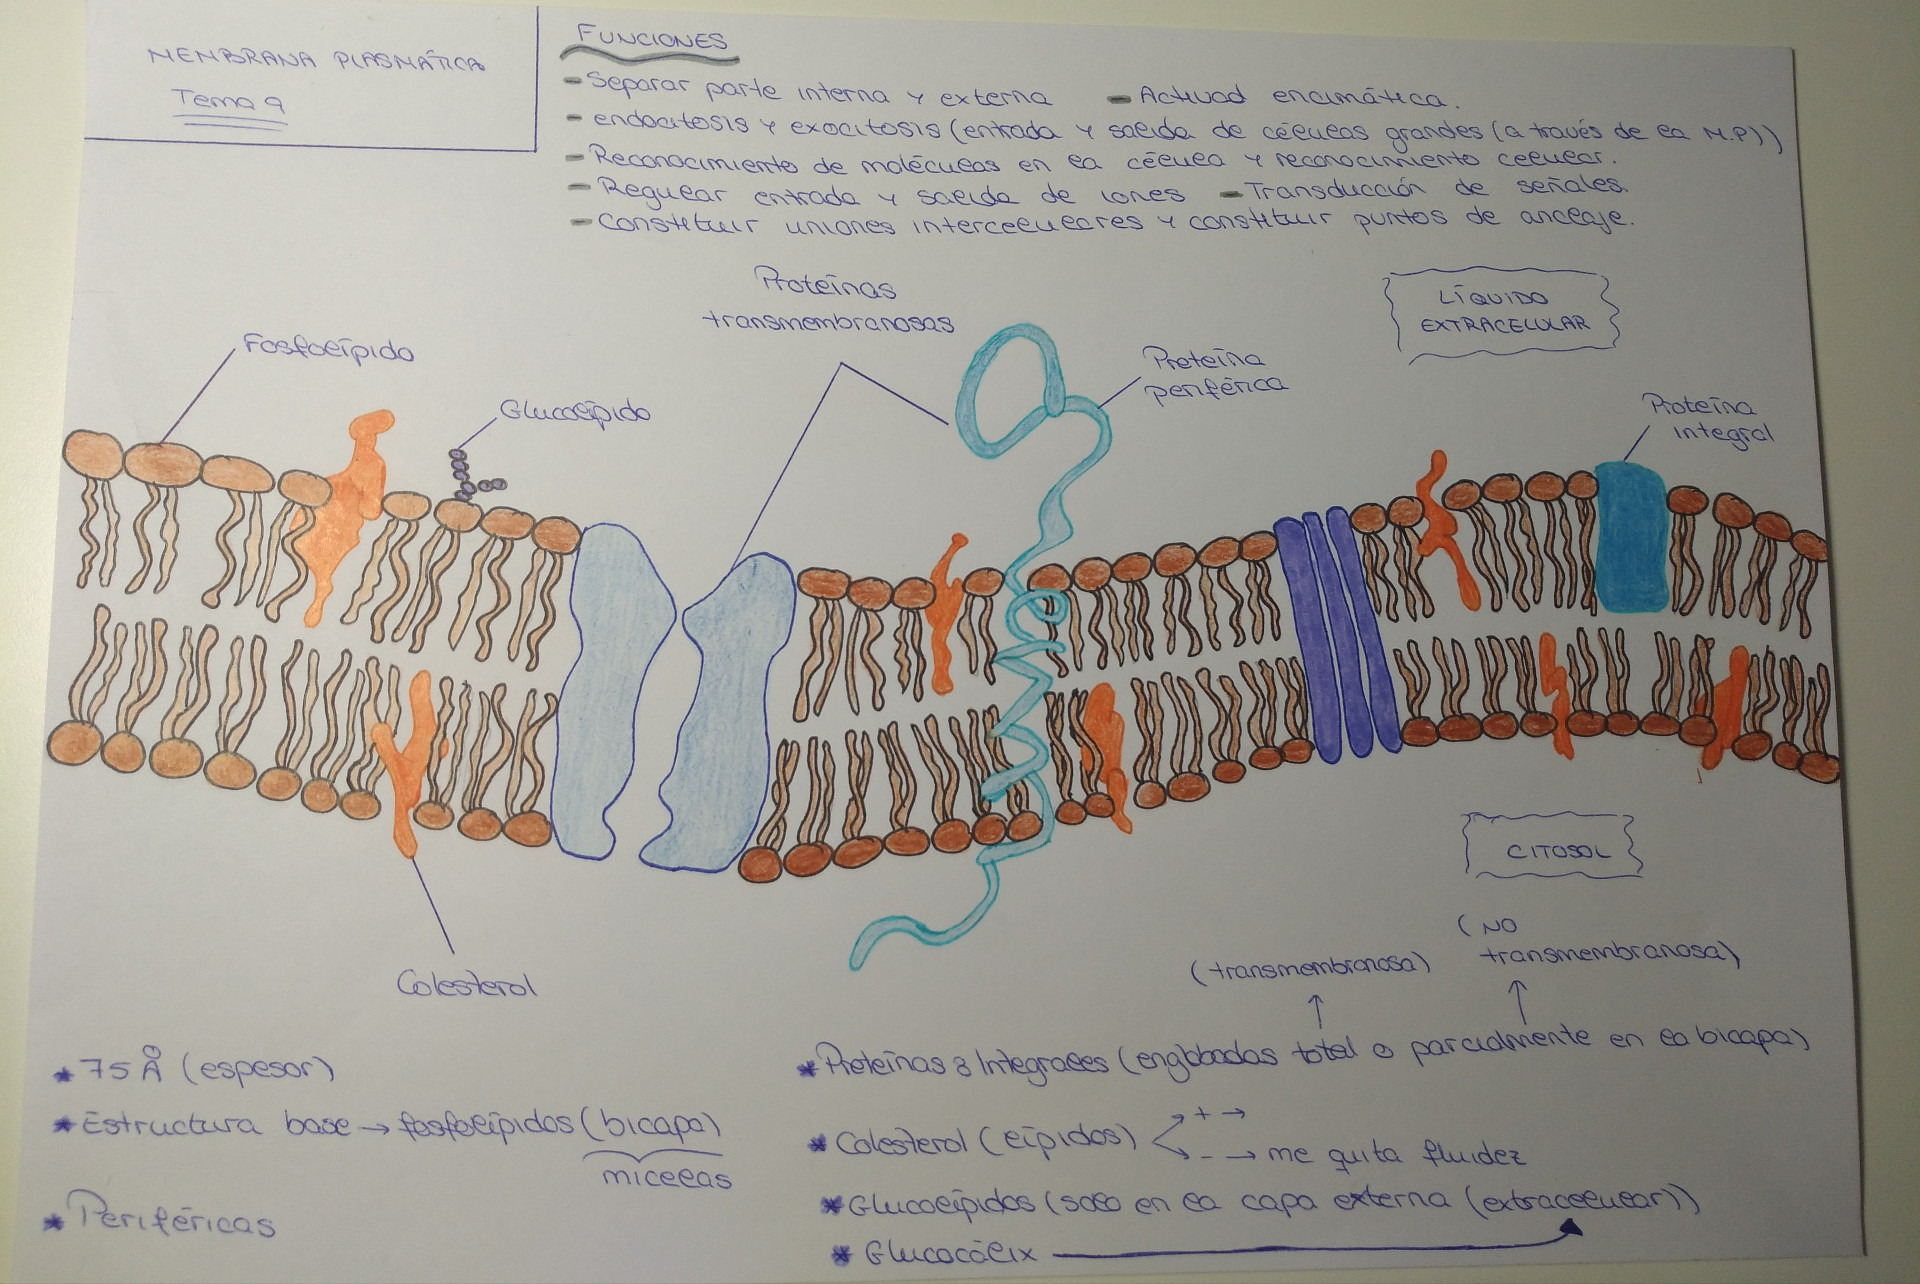 MENBRANA PLASMÁTICA
Tema 9
FUNCIONES
- Separar parte interna y externa - Activad encimática.
- endocitosis y exocitosis (entrada y salida de células grandes (a través de la M.P))
- Reconocimiento de moléculas en la célula y reconocimiento celular.
- Regular entrada y salida de iones - Transducción de señales.
- Constituir uniones intercelulares y constituir puntos de anclaje.
Proteínas
transmembranosas
LÍQUIDO
EXTRACELULAR
Fosfolípido
Proteína
periférica
Glucolípido
Proteína
integral
CITOSOL
Colesterol
(transmembranosa)
(NO
transmembranosa)
* 75 Å (espesor)
* Estructura base → fosfolípidos (bicapa)
micelas
* Periféricas
* Proteínas : Integrales (englobadas total o parcialmente en la bicapa)
* Colesterol (lípidos) + →
- → me quita fluidez
* Glucolípidos (solo en la capa externa (extracelular))
* Glucocálix